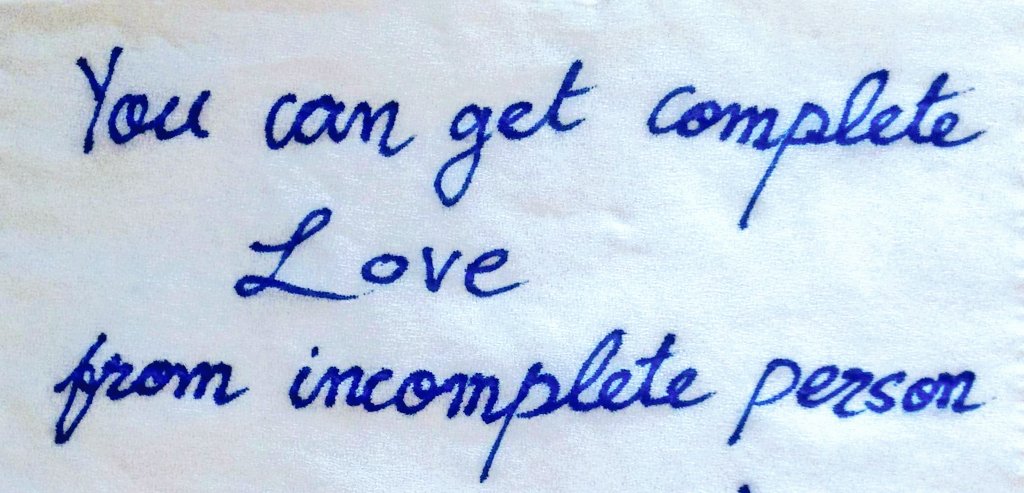 You can get complete
Love
from incomplete person